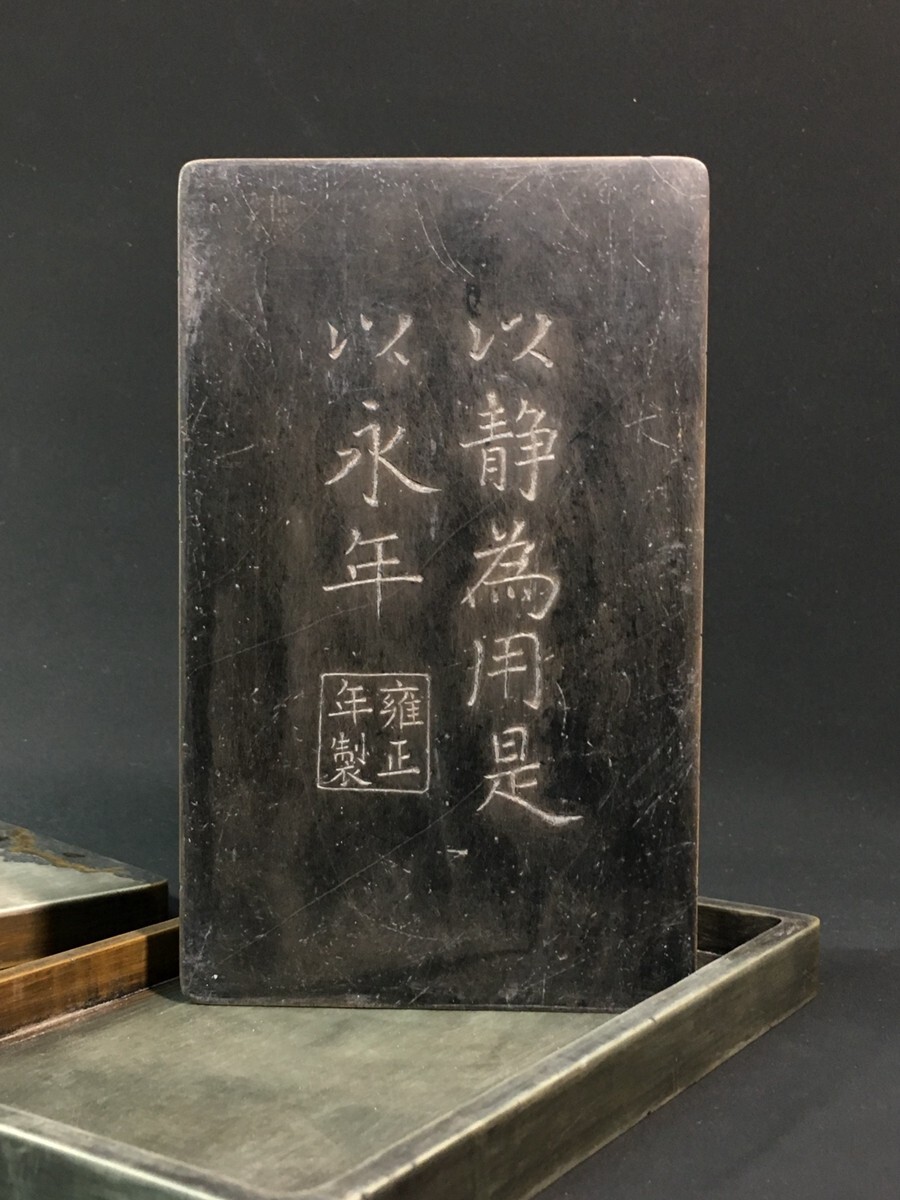 以静為用是
以永年
雍正
年製